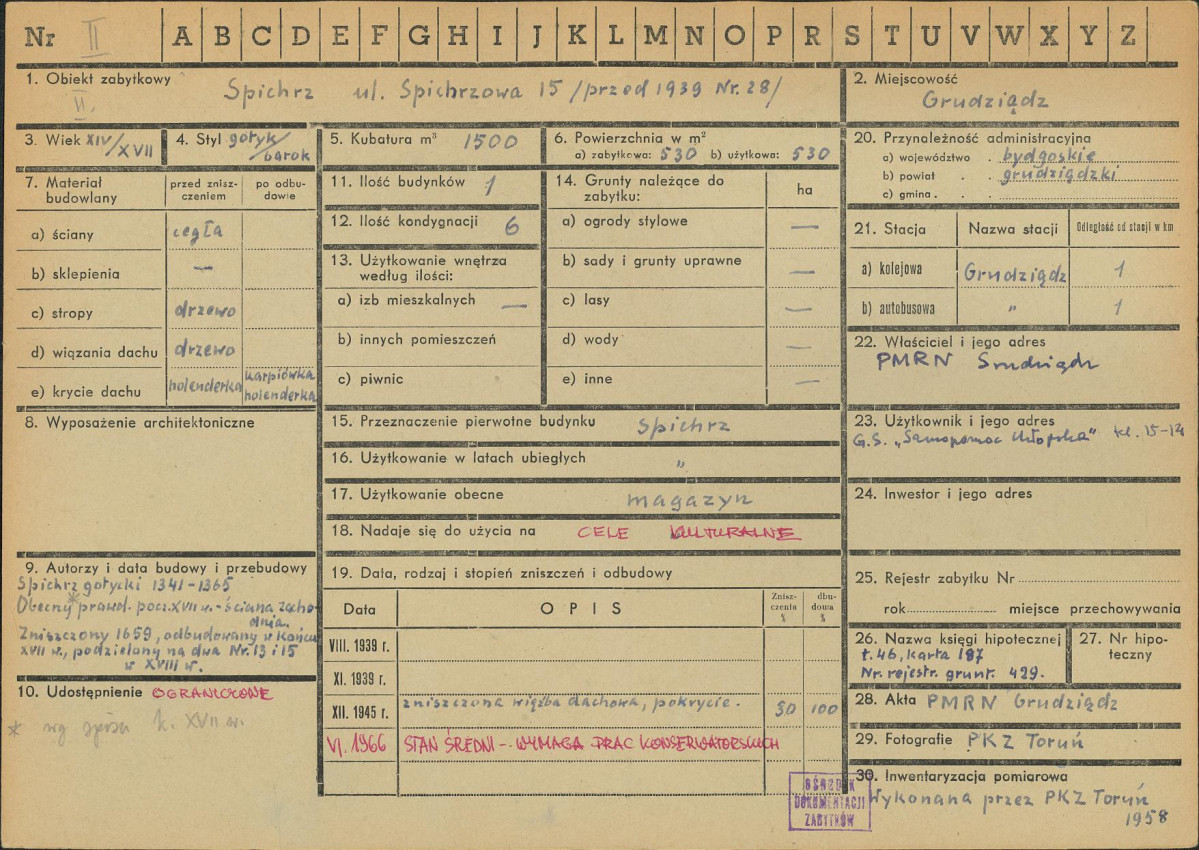 Nr II A B C D E F G H I J K L M N O P R S T U V W X Y Z
1. Obiekt zabytkowy Spichrz ul. Spichrzowa 15 /przed 1939 Nr. 28/
II.
2. Miejscowość
Grudziądz
3. Wiek XIV/XVII
4. Styl gotyk/barok
5. Kubatura m³ 1500
6. Powierzchnia w m²
a) zabytkowa: 530 b) użytkowa: 530
20. Przynależność administracyjna
a) województwo . bydgoskie
b) powiat . . grudziądzki
c) gmina . .
7. Materiał budowlany
przed znisz-czeniem
po odbu-dowie
a) ściany cegła
b) sklepienia —
c) stropy drzewo
d) wiązania dachu drzewo
e) krycie dachu holenderka karpiówka holenderka
11. Ilość budynków 1
12. Ilość kondygnacji 6
13. Użytkowanie wnętrza
według ilości:
a) izb mieszkalnych —
b) innych pomieszczeń
c) piwnic
14. Grunty należące do
zabytku:
ha
a) ogrody stylowe —
b) sady i grunty uprawne —
c) lasy —
d) wody —
e) inne —
21. Stacja Nazwa stacji Odległość od stacji w km
a) kolejowa Grudziądz 1
b) autobusowa " 1
22. Właściciel i jego adres
PMRN Grudziądz
8. Wyposażenie architektoniczne
15. Przeznaczenie pierwotne budynku spichrz
16. Użytkowanie w latach ubiegłych "
17. Użytkowanie obecne magazyn
18. Nadaje się do użycia na CELE KULTURALNE
23. Użytkownik i jego adres
G.S. „Samopomoc Chłopska"
24. Inwestor i jego adres
9. Autorzy i data budowy i przebudowy
Spichrz gotycki 1341-1365
Obecny* prawd. pocz. XVII w. - ściana zacho-
dnia.
Zniszczony 1659, odbudowany w końcu
XVII w., podzielony na dwa Nr. 13 i 15
w XVIII w.
10. Udostępnienie OGRANICZONE
* wg k. XVII w.
19. Data, rodzaj i stopień zniszczeń i odbudowy
Data OPIS Znisz-czenia % dbu-dowa %
VIII. 1939 r.
XI. 1939 r.
XII. 1945 r. zniszczona więźba dachowa, pokrycie. 30 100
VI. 1966 STAN ŚREDNI – WYMAGA PRAC KONSERWATORSKICH
25. Rejestr zabytku Nr
rok miejsce przechowywania
26. Nazwa księgi hipotecznej
t. 46, karta 187
Nr. rejestr. grunt. 429.
27. Nr hipo-
teczny
28. Akta PMRN Grudziądz
29. Fotografie PKZ Toruń
30. Inwentaryzacja pomiarowa
Wykonana przez PKZ Toruń
1958
OŚRODEK
DOKUMENTACJI
ZABYTKÓW